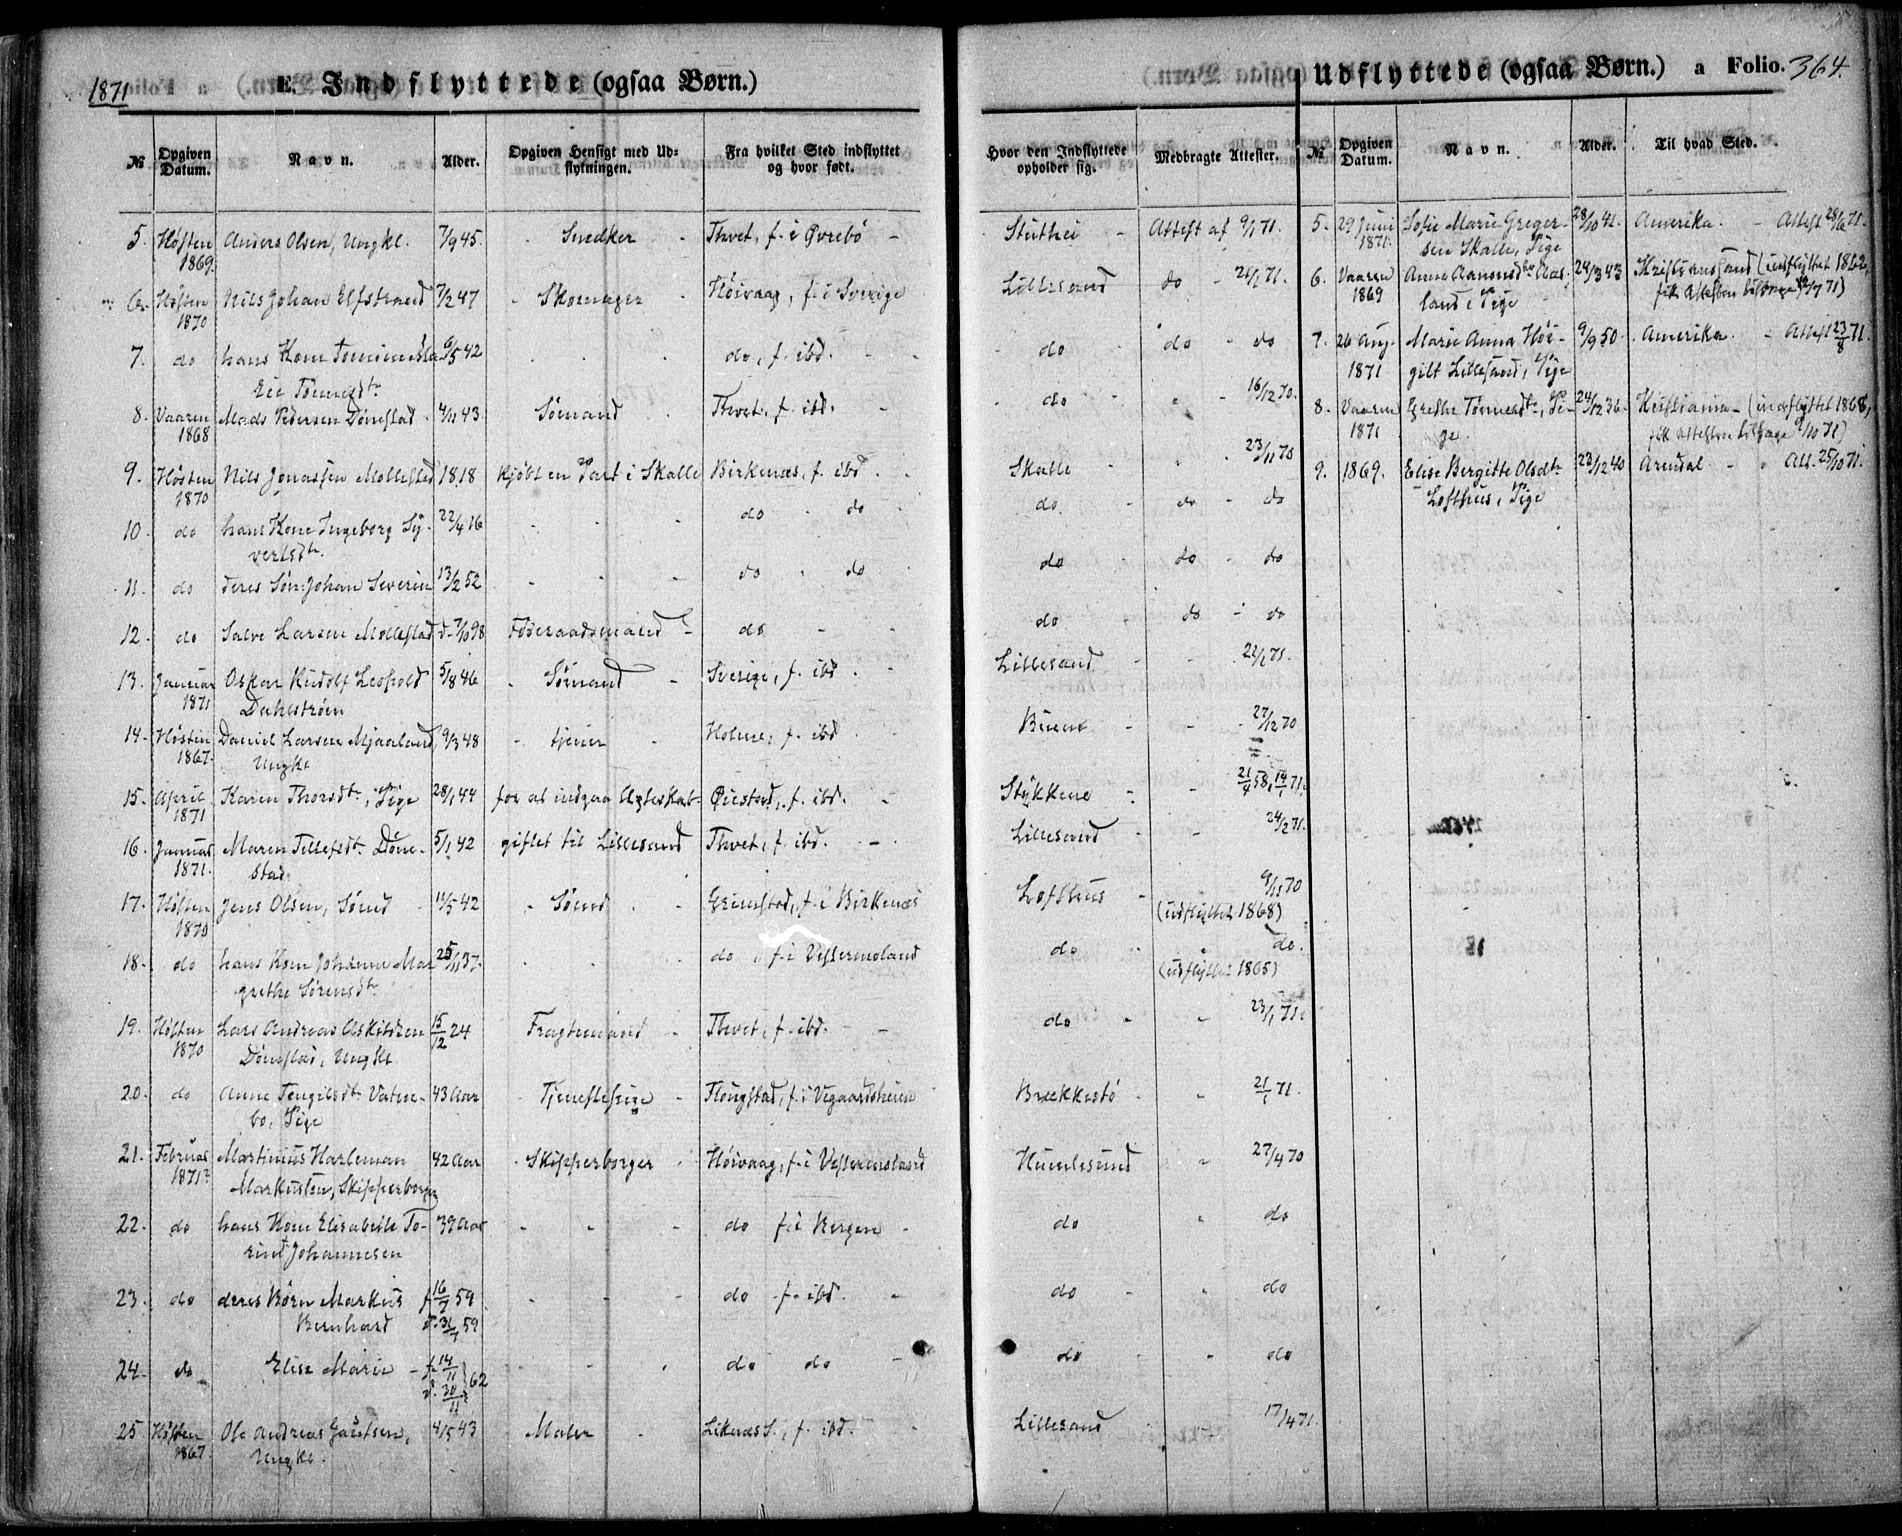 1871
E. Indflyttede (ogsaa Børn.)
№ Opgiven Datum. Navn. Alder. Opgiven Hensigt med Udflytningen. Fra hvilket Sted indflyttet og hvor født.
5. Høsten 1869. Anders Olsen, Ungkl. 7/9 45. Snedker Thvet, f. i Øvrebø
6. Høsten 1870 Nils Johan Elfstrand 7/2 47 Skomager Høivaag, f. i Sverige
7. do hans Kone 6/5 42 do, f. ibd.
8. Vaaren 1868 Mads Pedersen Dønestad 4/11 43. Sømand Thvet, f. ibd.
9. Høsten 1870 Nils Jonassen Mollestad 1818 Kjøbt en Part i Skalle Birkenæs, f. ibd
10. do hans Kone Ingeborg Syvertsdtr. 22/4 16 do do
11. do deres Søn Johan Severin 13/2 52 do do
12. do Salve Larsen Mollestad d. 7/10 98 Føderaadsmand do
13. Januar 1871 Oskar Rudolf Leopold Dahlstrøm 5/8 46 Sømand Sverige, f. ibd
14. Høsten 1867. Daniel Larsen Mjaaland, Ungkl 9/3 48 tjener Holme, f. ibd
15. April 1871 Karen Thorsdtr, Pige 28/1 44 for at indgaa Ægteskab Øiestad, f. ibd.
16. Januar 1871. Maren Tellefsdtr. Dønestad 5/1 42 giftet til Lillesand Thvet, f. ibd.
17. Høsten 1870 Jens Olsen, Sømd 11/5 42 Sømd Grimstad, f. i Birkenæs
18. do hans Kone Johanne Margrethe Sørensdtr 25/11 37. do, f. i Vestermoland
19. Høsten 1870 Lars Andreas Askildsen Dønestad, Ungkl. 15/12 24 Fragtemand Thvet, f. ibd.
20. do Anne Tengilsdtr. Vatnebo, Pige 43 Aar Tjenestepige f. i Vegaardsheien
21. Februar 1871 Martinius Harleman Markussen, Skipperborger 42 Aar Skipperborger Høivaag, f. i Vestermoland
22. do hans Kone Elisabeth Johannesen 39 Aar do f. i Bergen
23. do deres Børn Markus Bernhard f. 16/7 59 d. 31/7 59 do f. ibd.
24. do Elise Marie f. 14/11 d. 30/11 62 do do
25. Høsten 1867. Ole Andreas Gautsen, Ungkl. 4/5 43 Maler f. ibd.
Udflyttede (ogsaa Børn.) a Folio. 364.
Hvor den Indflyttede opholder sig. Medbragte Attester. № Opgiven Datum. Navn. Alder. Til hvad Sted.
Attest af 9/1 71. 5. 29 Juni 1871. Sofie Marie Gregersen Skalle, Pige 28/10 41. Amerika. Attest 28/6 71.
Lillesand do 21/1 71. 6. Vaaren 1869 Anne Aanonsdtr Aasland, Pige 24/3 43 Kristianssand (udflyttet 1862, fik Attesten tilbage 71)
do do do 7. 26 Aug. 1871 Marie Anna Høigilt Lillesand, Pige 9/9 50. Amerika. Attest 23/8 71.
do 16/12 70. 8. Vaaren 1871 Grethe Tønnesdtr, Pige 24/12 36. Kristiania (indflyttet 1868, fik Attesten tilbage 9/10 71)
Skalle 23/11 70 9. 1869. Elise Bergitte Olsdtr. Lofthus, Pige 23/12 40 Arendal Att. 25/10 71.
do do do
do do do
do do do
Lillesand 21/1 71.
27/12 70
Stykkene 21/4 58, 14/1 71.
Lillesand 24/2 71.
Lofthus 9/11 70 (udflyttet 1868)
do do. (udflyttet 1865)
do 23/1 71.
Brekkestø 21/1 71.
Humlesund 27/4 70
do do
do do
do do
Lillesand 17/4 71.